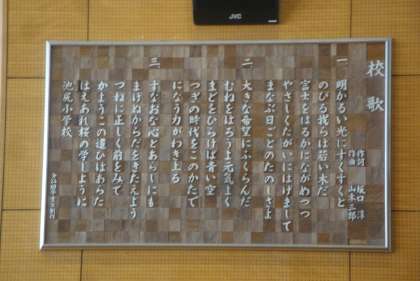 JVC
校歌
作詞 坂口淳
作曲 山本三郎
一 明かるい光にすくすくと
のびる我らは若い木だ
富士をはるかにながめつつ
やさしくたがいにはげまして
まなぶ日ごとのたのしさよ
二 大きな希望にふくらんだ
むねをはろうよ元気よく
まどをひらけば青い空
つぎの時代をこのかたで
になう力がわき上る
三 すなおな心とあらしにも
まけぬからだをきたえよう
つねに正しく前をみて
かようこの道ひはあらた
はえあれ桜の学しように
池尻小学校